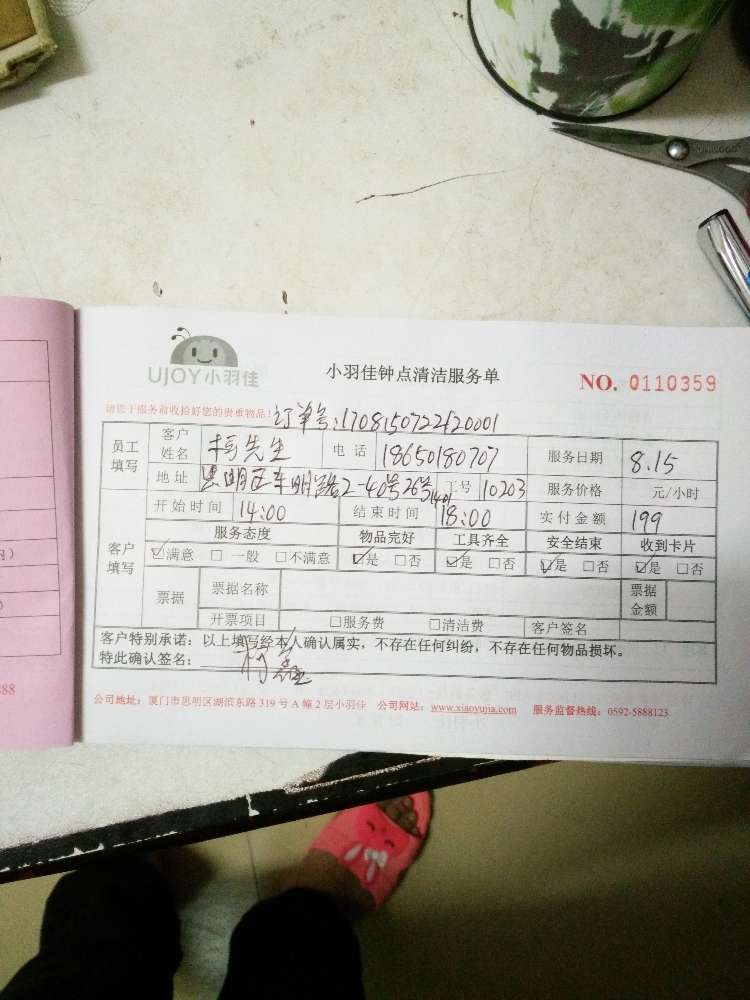 UJOY小羽佳
小羽佳钟点清洁服务单
NO. 0110359
请您于服务前收拾好您的贵重物品！订单号:170815072212001
员工填写 客户姓名 柯先生 电话 18650180707 服务日期 8.15
地址 思明区东明路2-40号26号1401 工号 10203 服务价格 元/小时
客户填写 开始时间 14:00 结束时间 18:00 实付金额 199
服务态度 物品完好 工具齐全 安全结束 收到卡片
☑满意 □一般 □不满意 ☑是 □否 ☑是 □否 ☑是 □否 ☑是 □否
票据 票据名称 票据金额
开票项目 □服务费 □清洁费 客户签名
客户特别承诺：以上填写经本人确认属实，不存在任何纠纷，不存在任何物品损坏。
特此确认签名：柯
公司地址：厦门市思明区湖滨东路319号A幢2层小羽佳 公司网站：www.xiaoyujia.com 服务监督热线：0592-5888123